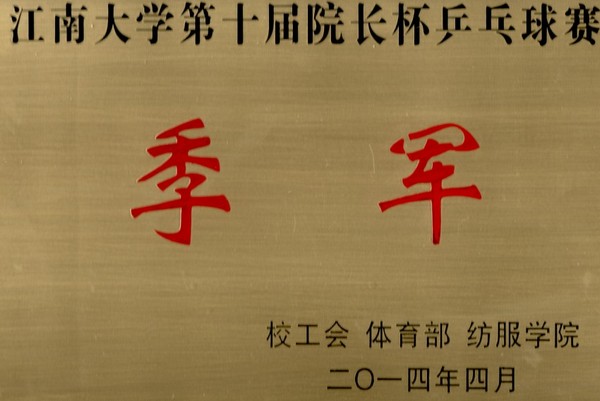 江南大学第十届院长杯乒乓球赛
季军
校工会 体育部 纺服学院
二〇一四年四月